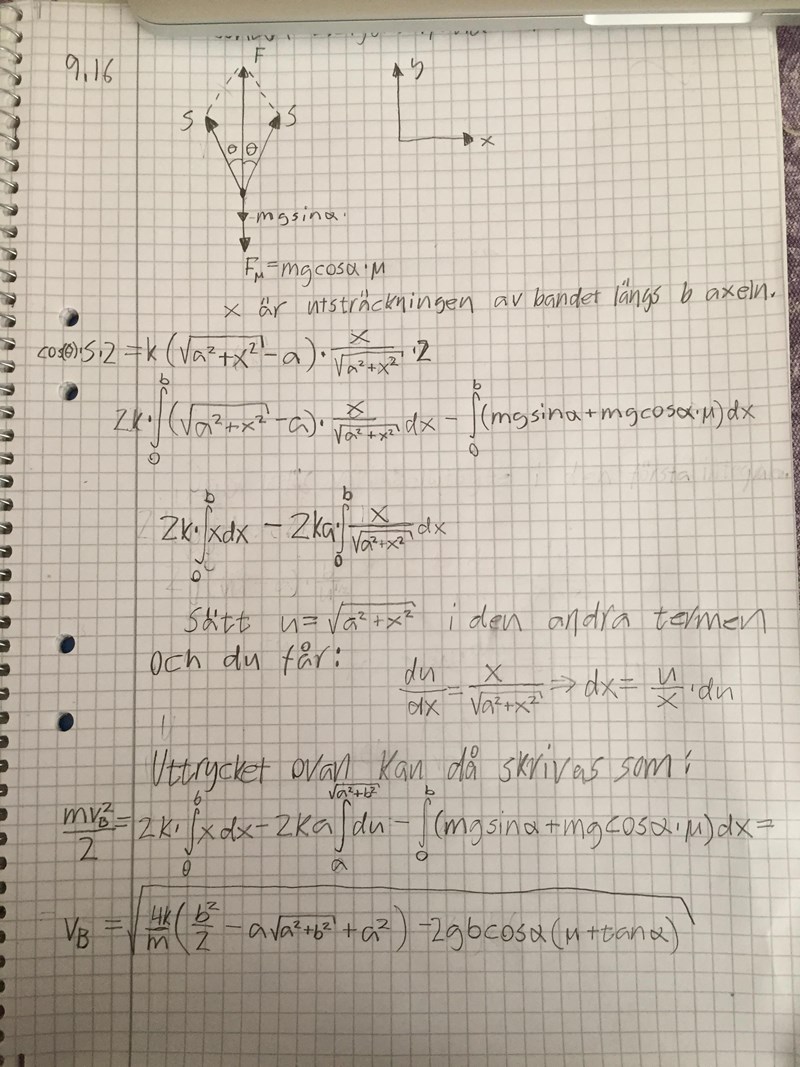 9.16
F
y
S
S
θ θ
x
mgsinα.
F_μ=mgcosα·μ
x är utsträckningen av bandet längs b axeln.
cos(θ)·S·2 = k(√(a²+x²) - a)· x/√(a²+x²) ·2
2k·∫₀ᵇ(√(a²+x²) - a)· x/√(a²+x²) dx - ∫₀ᵇ(mgsinα+mgcosα·μ)dx
2k·∫₀ᵇxdx - 2ka·∫₀ᵇ x/√(a²+x²) dx
Sätt u=√(a²+x²) i den andra termen
och du får:
du/dx = x/√(a²+x²) ⇒ dx= u/x ·du
Uttrycket ovan kan då skrivas som:
mv_B²/2 = 2k·∫₀ᵇxdx - 2ka∫ₐ^√(a²+b²) du - ∫₀ᵇ(mgsinα+mgcosα·μ)dx=
V_B = √(4k/m (b²/2 - a√(a²+b²) + a²) - 2gbcosα(μ+tanα))